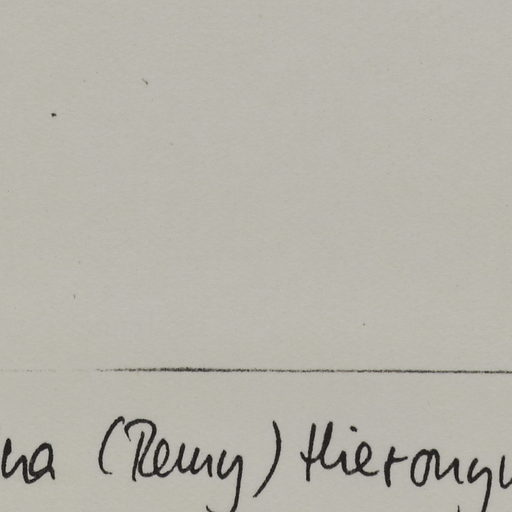 na (Remy) Hierony